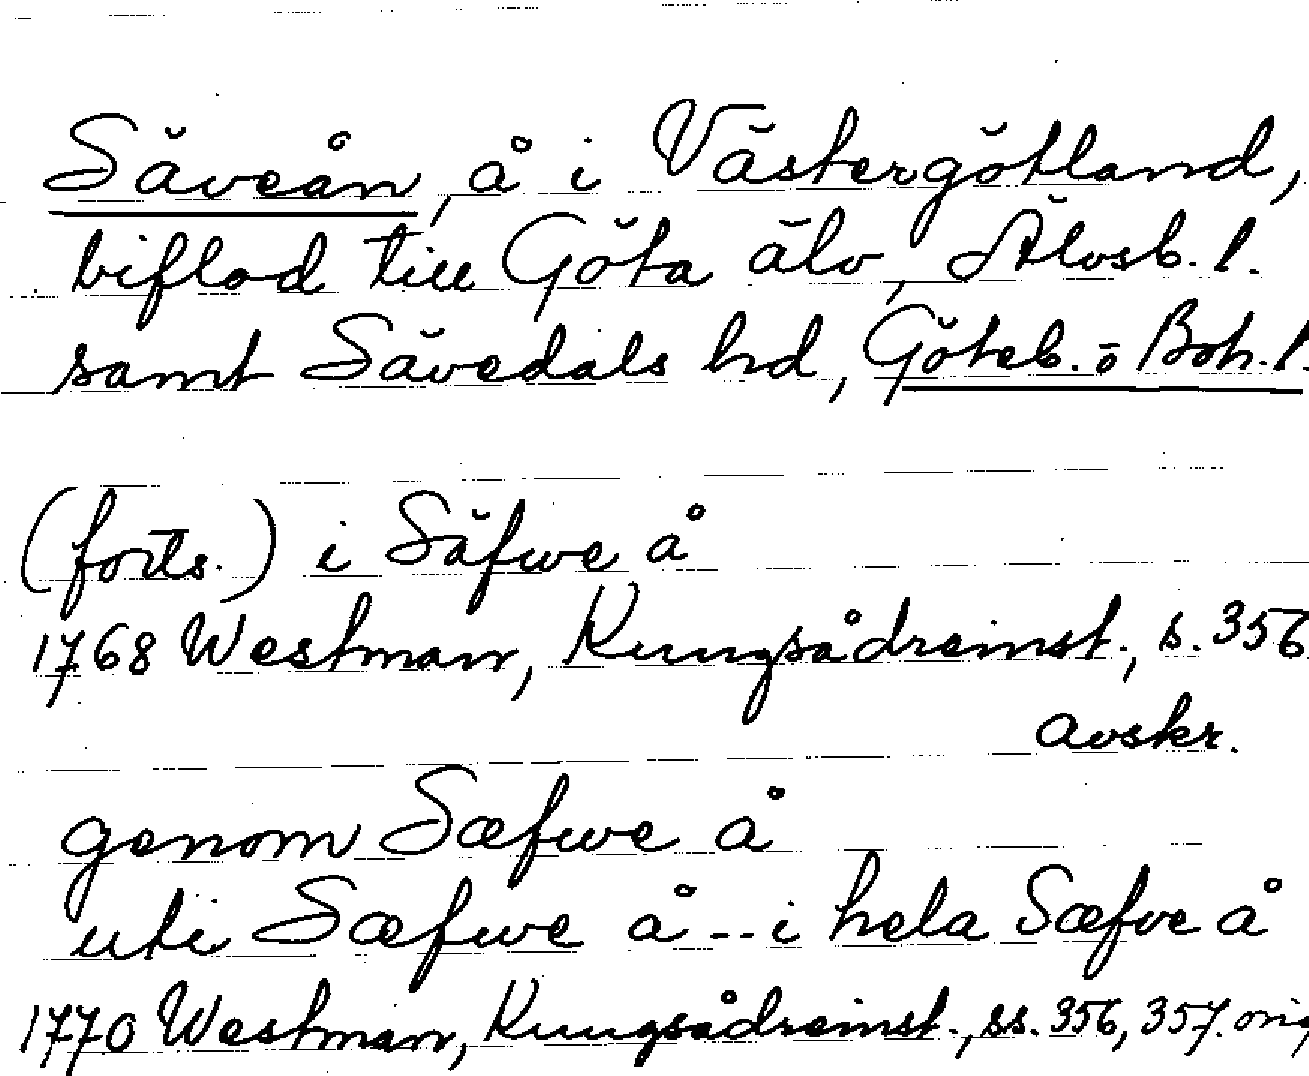 Säveån, å i Västergötland,
biflod till Göta älv, Älvsb. l.
samt Sävedals hd, Göteb. o Boh. l.
(forts.) i Säfwe å
1768 Westman, Kungsådreinst., s. 356
avskr.
genom Sæfwe å
uti Sæfwe å -- i hela Sæfve å
1770 Westman, Kungsådreinst., ss. 356, 357. orig